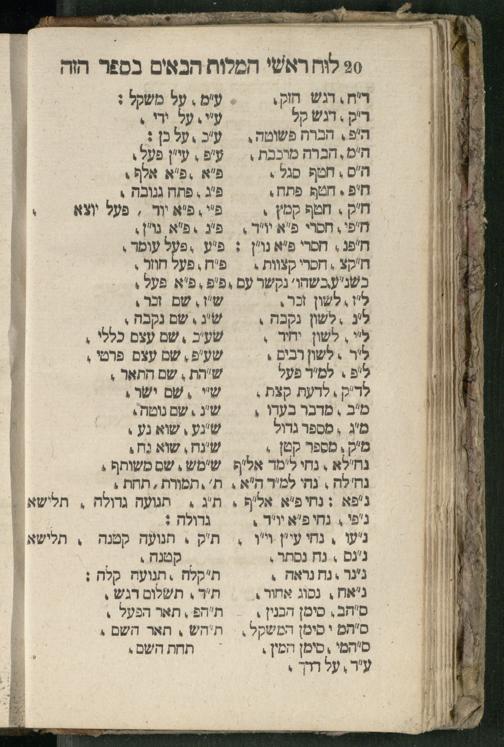 20 לוח ראשי המלות הבאים בספר הזה
ד״ח, דגש חזק,
ד״ק, דגש קל
ה״פ, הברה פשוטה,
ה״מ, הברה מרכבת,
ח״ס, חטף סגל,
ח״פ, חטף פתח,
ח״ק, חטף קמץ,
ח״פי, חסרי פ״א יו״ד,
ח״פנ, חסרי פ״א נו״ן:
ח״קצ, חסרי קצוות,
כשנ״עבשהו׳ נקשר עם,
ל״ז, לשון זכר,
ל״נ, לשון נקבה,
ל״י, לשון יחיד,
ל״ר, לשון רבים,
ל״פ, למ״ד פעל
לד״ק, לדעת קצת,
מ״ב, מדבר בעדו,
מ״ג, מספר גדול
מ״ק, מספר קטן,
נח״לא, נחי ל״מד אל״ף
נח״לה, נחי למ״ד ה״א,
נ״פא: נחי פ״א אל״ף,
נ״פי, נחי פ״א יו״ד,
נ״עו, נחי עי״ן וי״ו,
נ״נס, נח נסתר,
נ״נר, נח נראה,
נ״אח, נסוג אחור,
ס״הב, סימן הבנין,
ס״המ׳ סימן המשקל,
ס״המי, סימן המין,
ע״ד, על דרך,
ע״מ, על משקל:
ע״י, על ידי,
ע״כ, על כן:
ע״פ, עי״ן פעל,
פ״א, פ״א אלף,
פ״ג, פתח גנובה,
פ״י, פ״א יוד, פעל יוצא,
פ״נ, פ״א נו״ן,
פ״ע, פעל עומד,
פ״ח, פעל חוזר,
פ״פ, פ״א פעל,
ש״ז, שם זכר,
ש״נ, שם נקבה,
שע״כ, שם עצם כללי,
שע״פ, שם עצם פרטי,
ש״הת, שם התאר,
ש״י, שם ישר,
ש״נ, שם נוטה,
ש״נע, שוא נע,
ש״נח, שוא נח,
ש״מש, שם משותף,
ת׳, תמורת, תחת,
ת״ג, תנועה גדולה, תלישא
גדולה:
ת״ק, תנועה קטנה, תלישא
קטנה,
ת״קלה, תנועה קלה:
ת״ד, תשלום דגש,
ת״הפ, תאר הפעל,
ת״הש, תאר השם,
תחת השם,